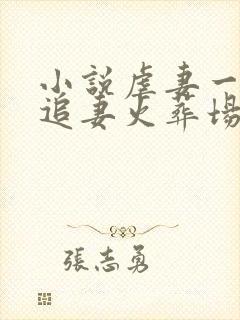 小説虐妻一
追妻火葬場
張志勇